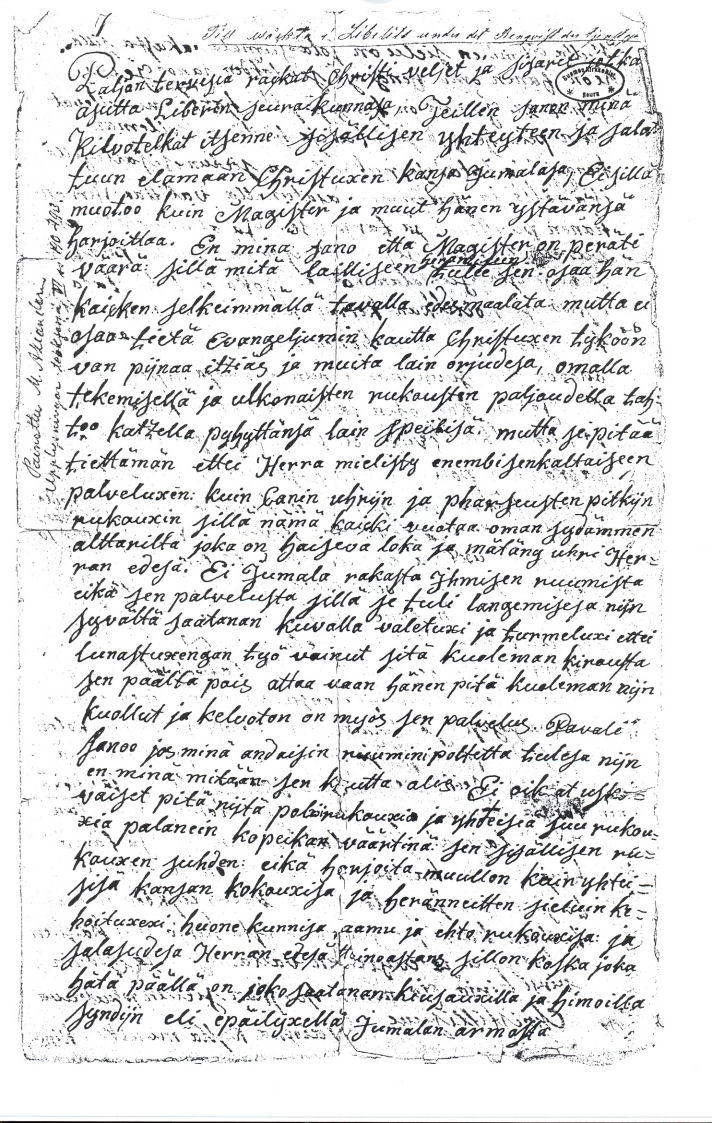 Till wäckta i Libelits under det
Paljon tervexiä rackat Christi veljet ja sisaret jotka
asutta Liberin seurakunnasa, Teillen sanon minä
Kilvotelkat itsenne sisällisen yhteyteen ja sala-
tuun elämään Christuxen kansa Jumalasa, Ei sillä
muotoo kuin Magister ja muut hänen ystävänsä
harjoittaa. En minä sano että Magister on peräti
väärä sillä mitä lailliseen herämiseen tulee sen osaa hän
kaicken selkeimmällä tavalla edesmaalata mutta ei
osaa tietä Evangeljumin kautta Christuxen tyköön
van pijnaa itziäs ja muita lain orjudesa, omalla
tekemisellä ja ulkonaisten rukousten paljoudella tah-
too katzella pyhyttänsä lain speilisä, mutta se pitää
tiettämän ettei Herra mielisty enembi senkaltaiseen
palveluxeen: kuin Canin uhrijn ja phariseusten pitkijn
rukouxin sillä nämä kaicki vuotaa oman sydämmen
alttarilta joka on haiseva loka ja mätäng uhri Her-
ran edesä. Ei Jumala rakasta Ihmisen ruumista
eikä sen palvelusta sillä se tuli langemisesa nijn
syvältä saatanan kuvalla valetuxi ja turmeluxi ettei
lunastuxengan työ vainut sitä kuoleman kirousta
sen päältä pois ottaa vaan hänen pitä kuoleman nijn
kuollut ja kelvoton on myös sen palvelus. Pavali
sanoo jos minä andaisin ruumini poltetta tulesa nijn
en minä mitään sen kautta olis. Ei oikat usko-
väiset pitä nijtä polvirukouxia ja yhteisiä suu rukou-
xia palanein kopeikan väärtinä sen sisällisen ru-
kouxen suhden: eikä harjoita muullon kuin yhtei-
sisä kansan kokouxisa ja heränneitten sieluin ke-
hoituxexi, huone kunnisa, aamu ja ehto rukouxisa: ja
salasudesa Herran edesä ainoastans sillon koska joku
hätä päällä on joko saatanan kiusauxilla ja himoilta
syndijn eli epäilyxellä Jumalan armosta
Painettu M. Akiander